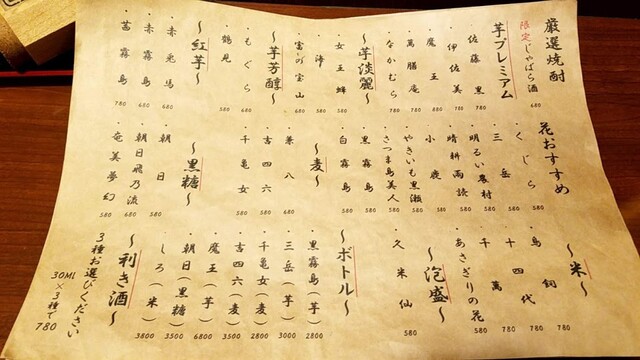 厳選焼酎
限定じゃばら酒 680
芋プレミアム
・佐藤黒 780
・伊佐美 780
・魔王 780
・萬膳庵 780
・なかむら 780
〜芋淡麗〜
・女王蜂 580
・海 580
・富の宝山 580
〜芋芳醇〜
・もぐら 580
・鶴見 580
〜紅芋〜
・赤兎馬 680
・赤霧島 680
・茜霧島 780
花おすすめ
・くじら 580
・三岳 580
・明るい農村 580
・晴耕雨読 580
・小鹿 580
・やきいも黒瀬 580
・さつま島美人 580
・黒霧島 580
・白霧島 580
〜麦〜
・兼八 680
・吉四六 580
・千亀女 580
〜黒糖〜
・朝日 580
・朝日飛乃流 680
・奄美夢幻 580
〜米〜
・鳥飼 780
・十四代 780
・千萬 780
・あさぎりの花 580
〜泡盛〜
・久米仙 580
〜ボトル〜
・黒霧島(芋) 2800
・三岳(芋) 3000
・千亀女(麦) 2800
・吉四六(麦) 3500
・魔王(芋) 6800
・朝日(黒糖) 3500
・しろ(米) 3800
〜利き酒〜
3種お選びください
30ML×3種で 780